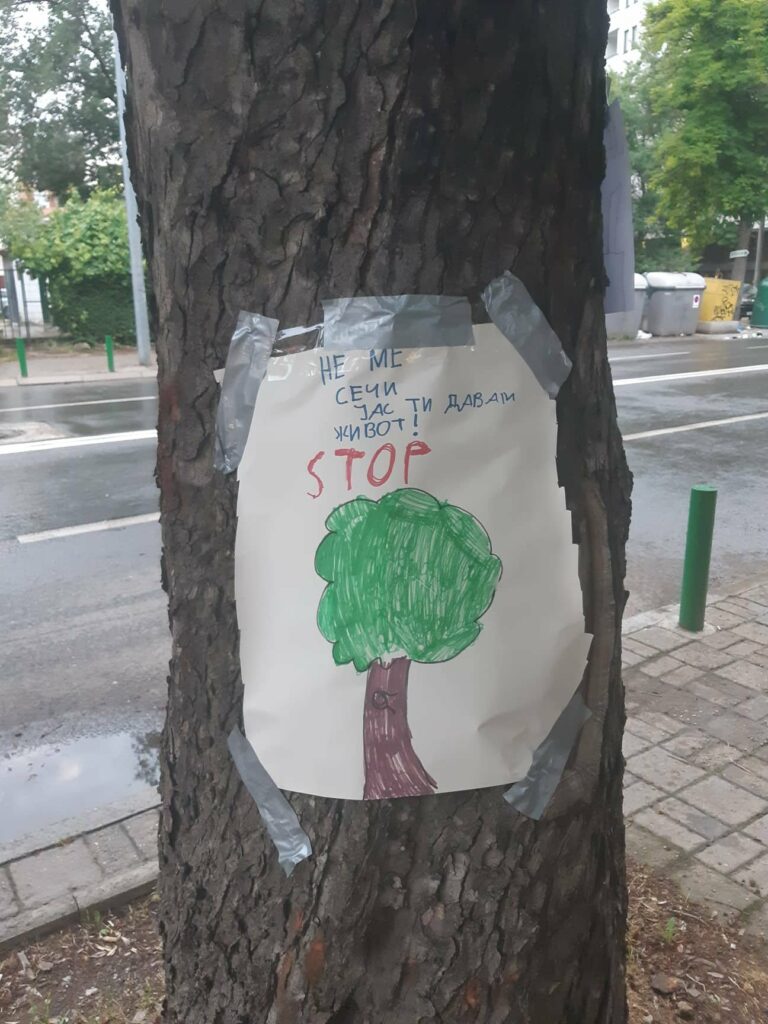 НЕ МЕ
СЕЧИ
ЈАС ТИ ДАВАМ
ЖИВОТ!
STOP